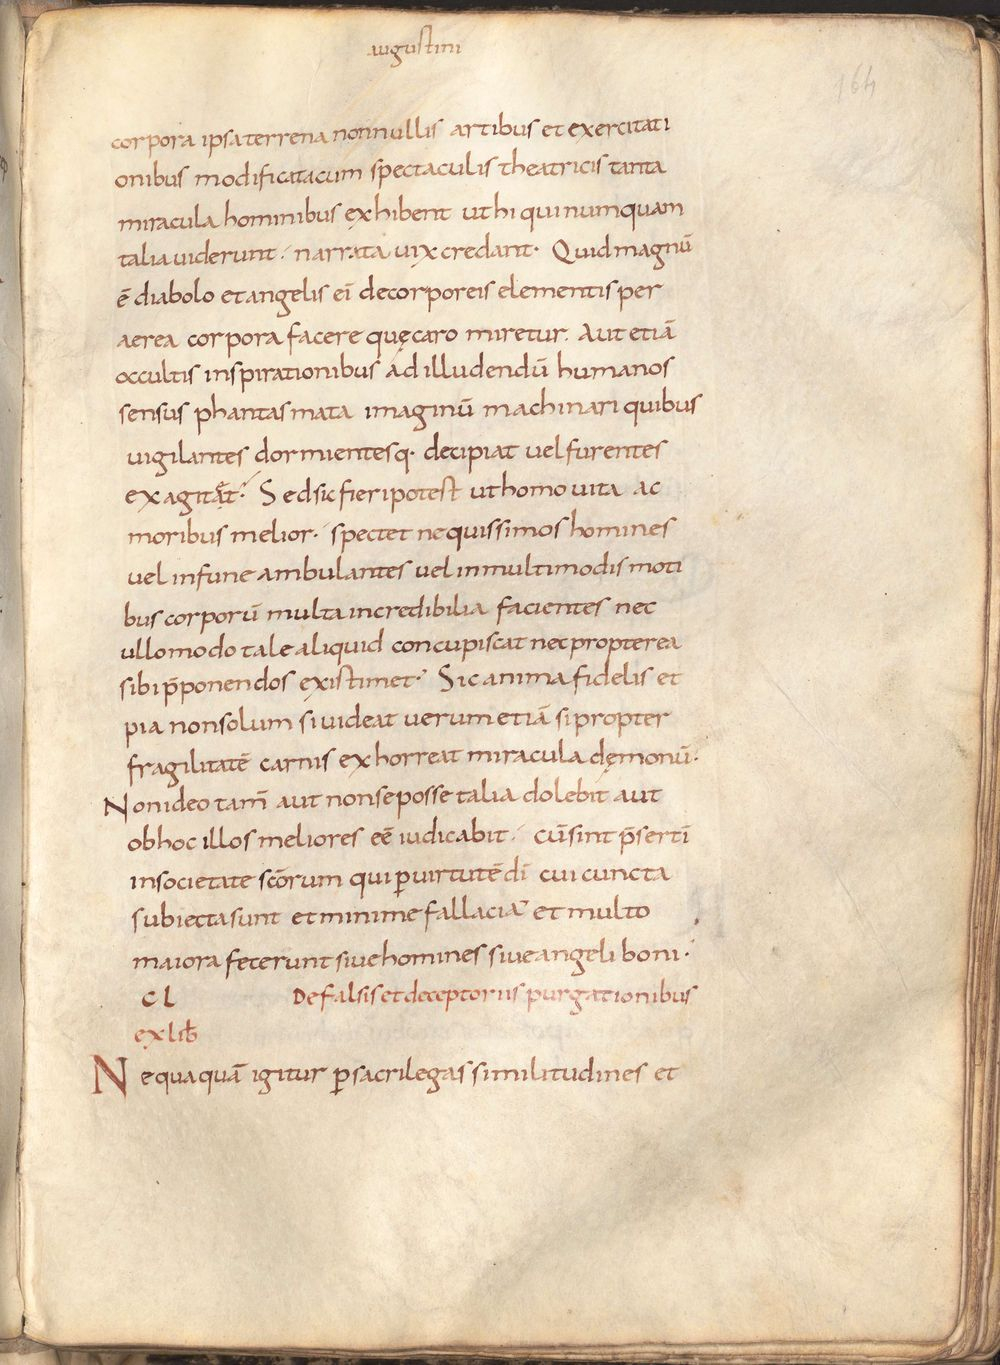 augustini
164
corpora ipsa terrena nonnullis artibus et exercitati
onibus modificata cum spectaculis theatricis tanta
miracula hominibus exhibent ut hi qui numquam
talia uiderunt· narrata uix credant· Quid magnū
ē diabolo et angelis ei᷒ de corporeis elementis per
aerea corpora facere quę caro miretur. Aut etiā
occultis inspirationibus ad illudendū humanos
sensus phantasmata imaginū machinari quibus
uigilantes dormientesq· decipiat uel furentes
exagitet· Sed sic fieri potest ut homo uita ac
moribus melior· spectet nequissimos homines
uel in fune ambulantes uel in multimodis moti
bus corporū multa incredibilia facientes nec
ullo modo tale aliquid concupiscat nec propterea
sibi p̄ponendos existimet· Sic anima fidelis et
pia non solum si uideat uerum etiā si propter
fragilitatē carnis exhorreat miracula dęmonū·
Non ideo tam̄ aut non se posse talia dolebit aut
ob hoc illos meliores eē iudicabit· cū sint p̄sertī
in societate scōrum qui ꝑ uirtutē dī cui cuncta
subiecta sunt et minime fallacia et multo
maiora fecerunt siue homines siue angeli boni·
CL De falsis et deceptoriis purgationibus
ex lib̄
Nequaquā igitur ꝑ sacrilegas similitudines et